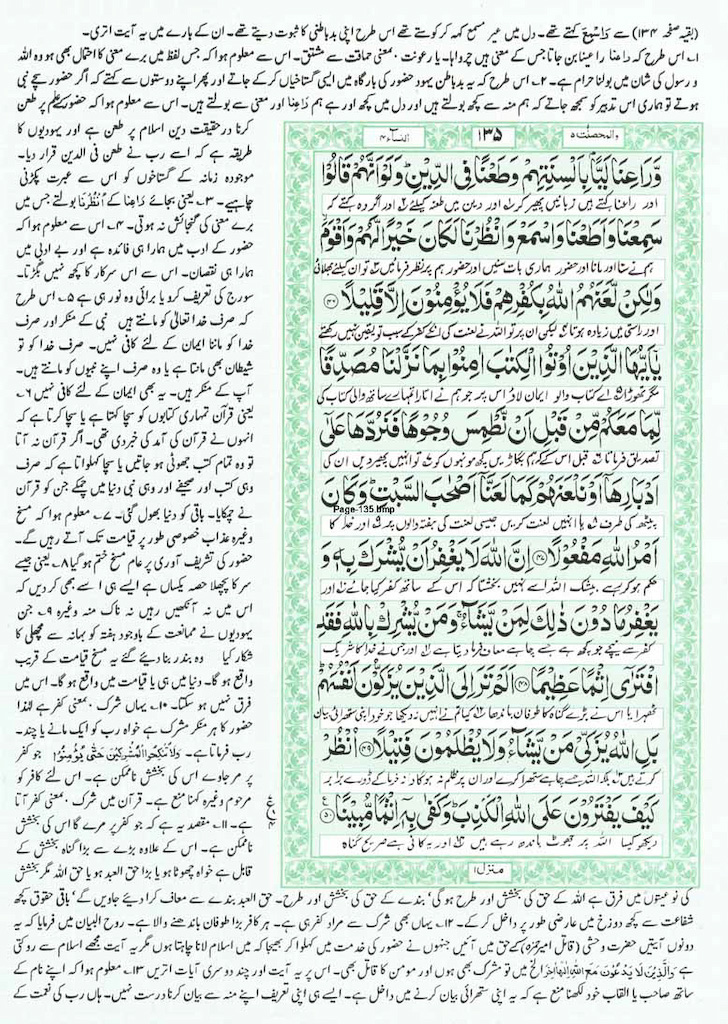 (بقیہ صفحہ ۱۳۴) سے رَاسْمِعْ کہتے تھے۔ دل میں غیر مسمع کہہ کر کوستے تھے اس طرح اپنی بدباطنی کا ثبوت دیتے تھے۔ ان کے بارے میں یہ آیت اتری۔
۱۔ اس طرح کہ راعنا راعینا بن جاتا جس کے معنی ہیں چرواہا۔ یا رعونت بمعنی حماقت سے مشتق۔ اس سے معلوم ہوا کہ جس لفظ میں برے معنی کا احتمال بھی ہو وہ اللہ
و رسول کی شان میں بولنا حرام ہے۔ ۲۔ اس طرح کہ یہ بدباطن یہود حضور کی بارگاہ میں ایسی گستاخیاں کر کے جاتے اور پھر اپنے دوستوں سے کہتے کہ اگر حضور سچے نبی
ہوتے تو ہماری اس تدبیر کو سمجھ جاتے کہ ہم منہ سے کچھ بولتے ہیں اور دل میں کچھ اور ہے ہم راعنا اور معنی سے بولتے ہیں۔ اس سے معلوم ہوا کہ حضور پر طعن
کرنا درحقیقت دین اسلام پر طعن ہے اور یہودیوں کا
طریقہ ہے کہ اسے رب نے طعن فی الدین قرار دیا۔
موجودہ زمانہ کے گستاخوں کو اس سے عبرت پکڑنی
چاہیے۔ ۳۔ یعنی بجائے رَاعِنَا کے اُنْظُرْنَا بولتے جس میں
برے معنی کی گنجائش نہ ہوتی۔ ۴۔ اس سے معلوم ہوا کہ
حضور کے ادب میں ہمارا ہی فائدہ ہے اور بے ادبی میں
ہمارا ہی نقصان۔ اس سے اس سرکار کا کچھ نہیں بگڑتا۔
سورج کی تعریف کرو یا برائی وہ نور ہی ہے ۵۔ اس طرح
کہ صرف خدا تعالیٰ کو مانتے ہیں نبی کے منکر اور صرف
خدا کو ماننا ایمان کے لئے کافی نہیں۔ صرف خدا کو تو
شیطان بھی مانتا ہے یا وہ صرف اپنے نبیوں کو مانتے ہیں۔
آپ کے منکر ہیں۔ یہ بھی ایمان کے لئے کافی نہیں ۶۔
یعنی قرآن تمہاری کتابوں کو سچا کہتا ہے یا سچا کرتا ہے کہ
انہوں نے قرآن کی آمد کی خبر دی تھی۔ اگر قرآن نہ آتا
تو وہ تمام کتب جھوٹی ہو جاتیں یا سچا کہلواتا ہے کہ صرف
وہی کتب اور صحیفے اور وہی نبی دنیا میں چمکے جن کو قرآن
نے چمکایا۔ باقی کو دنیا بھول گئی۔ ۷۔ معلوم ہوا کہ مسخ
وغیرہ عذاب خصوصی طور پر قیامت تک آتے رہیں گے۔
حضور کی تشریف آوری پر عام مسخ ختم ہو گیا ۸۔ یعنی جیسے
سر کا پچھلا حصہ یکساں ہے ایسے ہی اسے بھی کر دیں کہ
اس میں نہ آنکھیں رہیں نہ ناک منہ وغیرہ ۹۔ جن
یہودیوں نے ممانعت کے باوجود ہفتہ کو بہانہ سے مچھلی کا
شکار کیا وہ بندر بنا دیئے گئے یہ مسخ قیامت کے قریب
واقع ہو گا۔ دنیا میں ہی یا قیامت میں واقع ہو گا۔ اس میں
فرق نہیں ہو سکتا۔ ۱۰۔ یہاں شرک بمعنی کفر ہے لہٰذا
حضور کا ہر منکر مشرک ہے خواہ رب کو ایک مانے یا چند۔
رب فرماتا ہے۔ وَلَا تُنْكِحُوا الْمُشْرِكِيْنَ حَتّٰى يُؤْمِنُوْا جو کفر
پر مر جاوے اس کی بخشش ناممکن ہے۔ اس لئے کافر کو
مرحوم وغیرہ کہنا منع ہے۔ قرآن میں شرک بمعنی کفر آتا
ہے۔ ۱۱۔ مقصد یہ ہے کہ جو کفر پر مرے گا اس کی بخشش
ناممکن ہے۔ اس کے علاوہ بڑے سے بڑا گناہ بخشش کے
قابل ہے خواہ چھوٹا ہو یا بڑا حق العبد ہو یا حق اللہ مگر بخشش
والمحصنٰت ۵
۱۳۵
النساء ۴
وَّرَاعِنَا لَيًّۢا بِاَلْسِنَتِهِمْ وَطَعْنًا فِى الدِّيْنِ ؕ وَلَوْ اَنَّهُمْ قَالُوْا
اور راعنا کہتے ہیں زبانیں پھیر کر ۱ اور دین میں طعنہ کیلئے ۲ اور اگر وہ کہتے کہ
سَمِعْنَا وَاَطَعْنَا وَاسْمَعْ وَانْظُرْنَا لَكَانَ خَيْرًا لَّهُمْ وَاَقْوَمَ
ہم نے سنا اور مانا اور حضور ہماری بات سنیں اور حضور ہم پر نظر فرمائیں ۳ تو ان کیلئے بھلائی
وَلٰكِنْ لَّعَنَهُمُ اللّٰهُ بِكُفْرِهِمْ فَلَا يُؤْمِنُوْنَ اِلَّا قَلِيْلًا ﴿۴۶﴾
اور راستی میں زیادہ ہوتا ۴ لیکن ان پر تو اللہ نے لعنت کی انکے کفر کے سبب تو یقین نہیں رکھتے
يٰۤاَيُّهَا الَّذِيْنَ اُوْتُوا الْكِتٰبَ اٰمِنُوْا بِمَا نَزَّلْنَا مُصَدِّقًا
مگر تھوڑا ۵ اے کتاب والو ایمان لاؤ اس پر جو ہم نے اتارا تمہارے ساتھ والی کتاب کی
لِّمَا مَعَكُمْ مِّنْ قَبْلِ اَنْ نَّطْمِسَ وُجُوْهًا فَنَرُدَّهَا عَلٰۤى
تصدیق فرماتا ۶ قبل اس کے کہ ہم بگاڑ دیں کچھ مونہوں کو ۷ تو انہیں پھیر دیں ان کی
اَدْبَارِهَاۤ اَوْ نَلْعَنَهُمْ كَمَا لَعَنَّاۤ اَصْحٰبَ السَّبْتِ ؕ وَكَانَ
Page-135.bmp
پیٹھ کی طرف ۸ یا انہیں لعنت کریں جیسی لعنت کی ہفتہ والوں پر ۹ اور خدا کا
اَمْرُ اللّٰهِ مَفْعُوْلًا ﴿۴۷﴾ اِنَّ اللّٰهَ لَا يَغْفِرُ اَنْ يُّشْرَكَ بِهٖ وَ
حکم ہو کر رہے بیشک اللہ اسے نہیں بخشتا کہ اس کے ساتھ کفر کیا جائے ۱۰ اور
يَغْفِرُ مَا دُوْنَ ذٰلِكَ لِمَنْ يَّشَآءُ ۚ وَمَنْ يُّشْرِكْ بِاللّٰهِ فَقَدِ
کفر سے نیچے جو کچھ ہے جسے چاہے معاف فرما دیتا ہے ۱۱ اور جس نے خدا کا شریک
افْتَرٰۤى اِثْمًا عَظِيْمًا ﴿۴۸﴾ اَلَمْ تَرَ اِلَى الَّذِيْنَ يُزَكُّوْنَ اَنْفُسَهُمْ
ٹھہرایا اس نے بڑے گناہ کا طوفان باندھا ۱۲ کیا تم نے انہیں نہ دیکھا جو خود اپنی ستھرائی بیان
بَلِ اللّٰهُ يُزَكِّىْ مَنْ يَّشَآءُ وَلَا يُظْلَمُوْنَ فَتِيْلًا ﴿۴۹﴾ اُنْظُرْ
کرتے ہیں ۱۳ بلکہ اللہ جسے چاہے ستھرا کرے اور ان پر ظلم نہ ہو گا دانہ خرما کے ڈورے برابر
كَيْفَ يَفْتَرُوْنَ عَلَى اللّٰهِ الْكَذِبَ ؕ وَكَفٰى بِهٖۤ اِثْمًا مُّبِيْنًا ﴿۵۰﴾
دیکھو کیسا اللہ پر جھوٹ باندھ رہے ہیں اور یہ کافی ہے صریح گناہ
منزل ۱
کی نوعیتوں میں فرق ہے اللہ کے حق کی بخشش اور طرح ہو گی، بندے کے حق کی بخشش اور طرح۔ حق العبد بندے سے معاف کرا دیئے جاویں گے، باقی حقوق کچھ
شفاعت سے کچھ دوزخ میں عارضی طور پر داخل کر کے۔ ۱۲۔ یہاں بھی شرک سے مراد کفر ہی ہے۔ ہر کافر بڑا طوفان باندھنے والا ہے۔ روح البیان میں فرمایا کہ یہ
دونوں آیتیں حضرت وحشی (قاتل امیر حمزہ) کے حق میں آئیں جنہوں نے حضور کی خدمت میں کہلوا کر بھیجا کہ میں اسلام لانا چاہتا ہوں مگر یہ آیت مجھے اسلام سے روکتی
ہے وَالَّذِيْنَ لَا يَدْعُوْنَ مَعَ اللّٰهِ اِلٰهًا اٰخَرَ الخ میں تو مشرک بھی ہوں اور مومن کا قاتل بھی۔ اس پر یہ آیت اور چند دوسری آیات اتریں ۱۳۔ معلوم ہوا کہ اپنے نام کے
ساتھ صاحب یا القاب خود لکھنا منع ہے کہ یہ اپنی ستھرائی بیان کرنے میں داخل ہے۔ ایسے ہی اپنی تعریف اپنے منہ سے بیان کرنا درست نہیں۔ ہاں رب کی نعمت کے